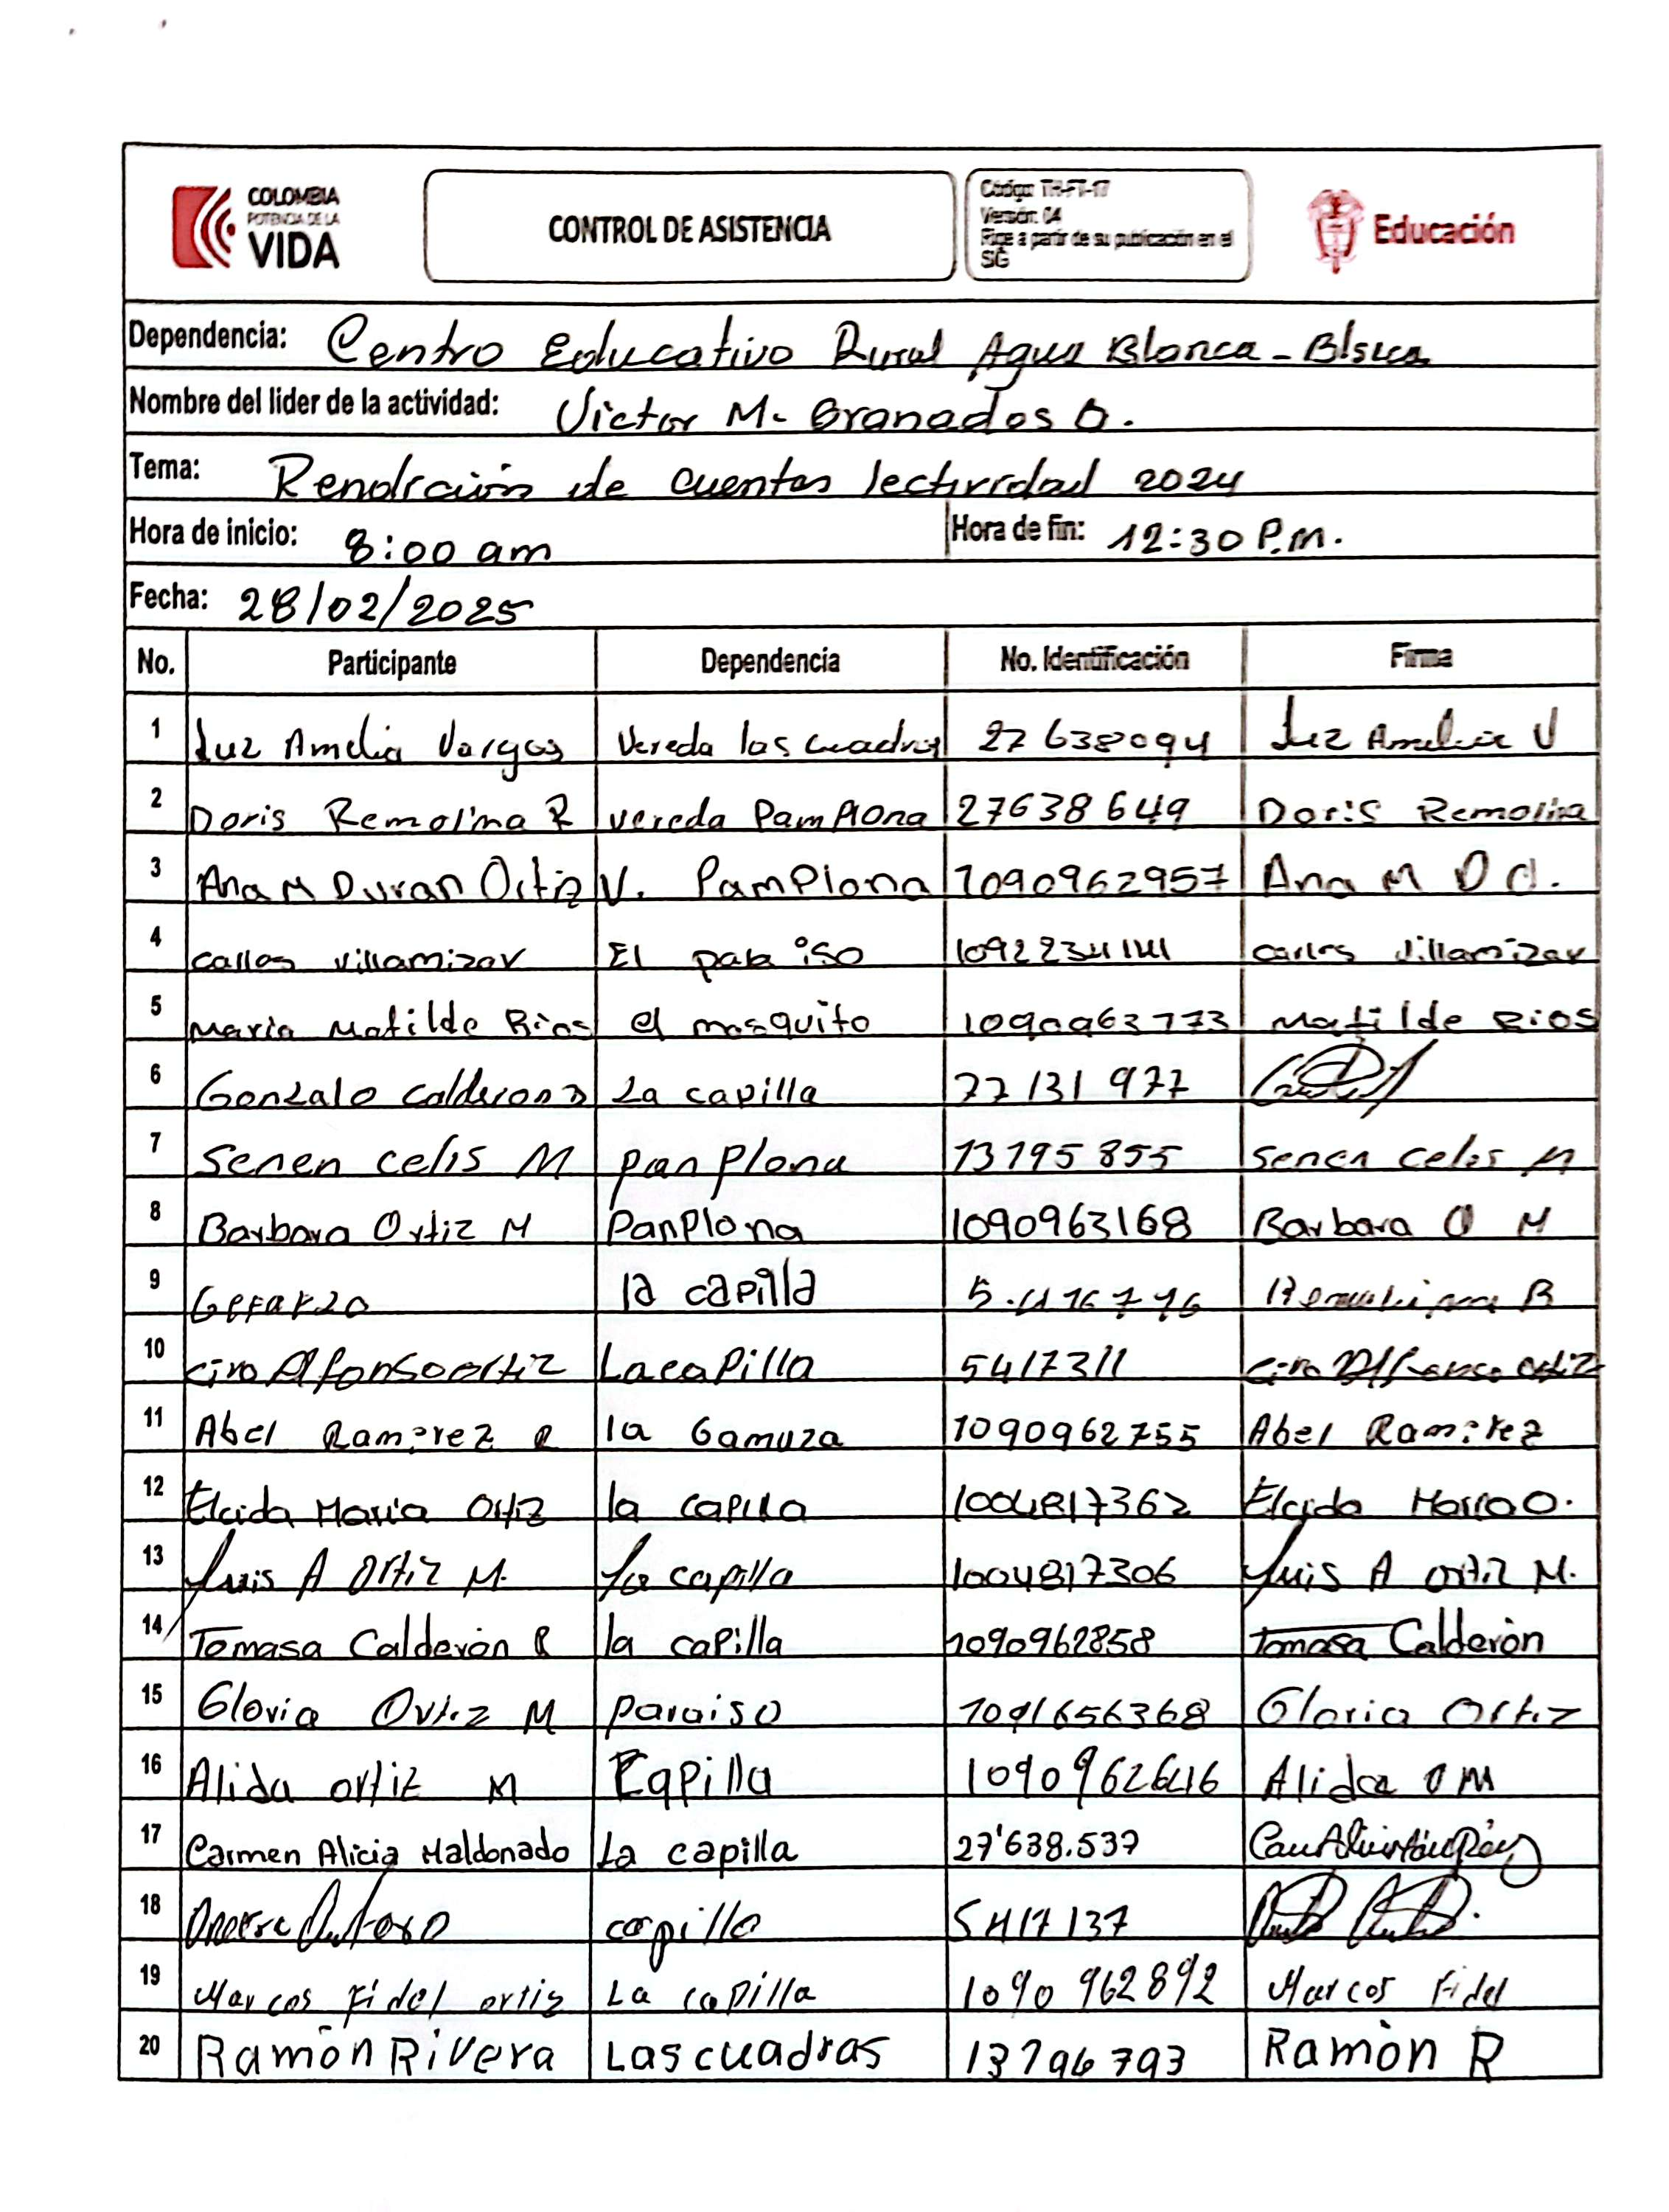 COLOMBIA
POTENCIA DE LA
VIDA
CONTROL DE ASISTENCIA
Código: TH-FT-17
Versión: 04
Rige a partir de su publicación en el
SIG
Educación
Dependencia: Centro Educativo Rural Agua Blanca -
Nombre del lider de la actividad: Victor M. Granados O.
Tema: Rendición de cuentas lectividad 2024
Hora de inicio: 8:00 am Hora de fin: 12:30 P.m.
Fecha: 28/02/2025
No. Participante Dependencia No. Identificación Firma
1 Luz Amelia Vargas Vereda las cuadras 27638094 Luz Amelia V
2 Doris Remolina R vereda Pamplona 27638649 Doris Remolina
3 Ana M Duran Ortiz V. Pamplona 1090962957 Ana M D O.
4 Carlos Villamizar El paraiso 1092234141 Carlos Villamizar
5 Maria Matilde Rios el mosquito 1090963773 Matilde Rios
6 Gonzalo Calderon La capilla 77131977
7 Senen celis M panplona 13195855 Senen celis M
8 Barbara Ortiz M PanPlona 1090963168 Barbara O M
9 la capilla
10 ciro Alfonso ortiz La capilla 5417311 ciro Alfonso ortiz
11 Abel Ramirez R la Gamuza 1090962755 Abel Ramirez
12 Elcida Maria Ortiz la capilla 1004817362 Elcida Maria O.
13 Luis A Ortiz M. La capilla 1004817306 Luis A ortiz M.
14 Tomasa Calderón R la capilla 1090962858 Tomasa Calderón
15 Gloria Ortiz M paraiso 1091656368 Gloria Ortiz
16 Alida ortiz M Capilla 1090962646 Alida O M
17 Carmen Alicia Maldonado La capilla 27'638.537
18 capilla 5417137
19 Marcos Fidel ortiz La capilla 1090962892 Marcos Fidel
20 Ramòn Rivera Las cuadras 13196793 Ramòn R